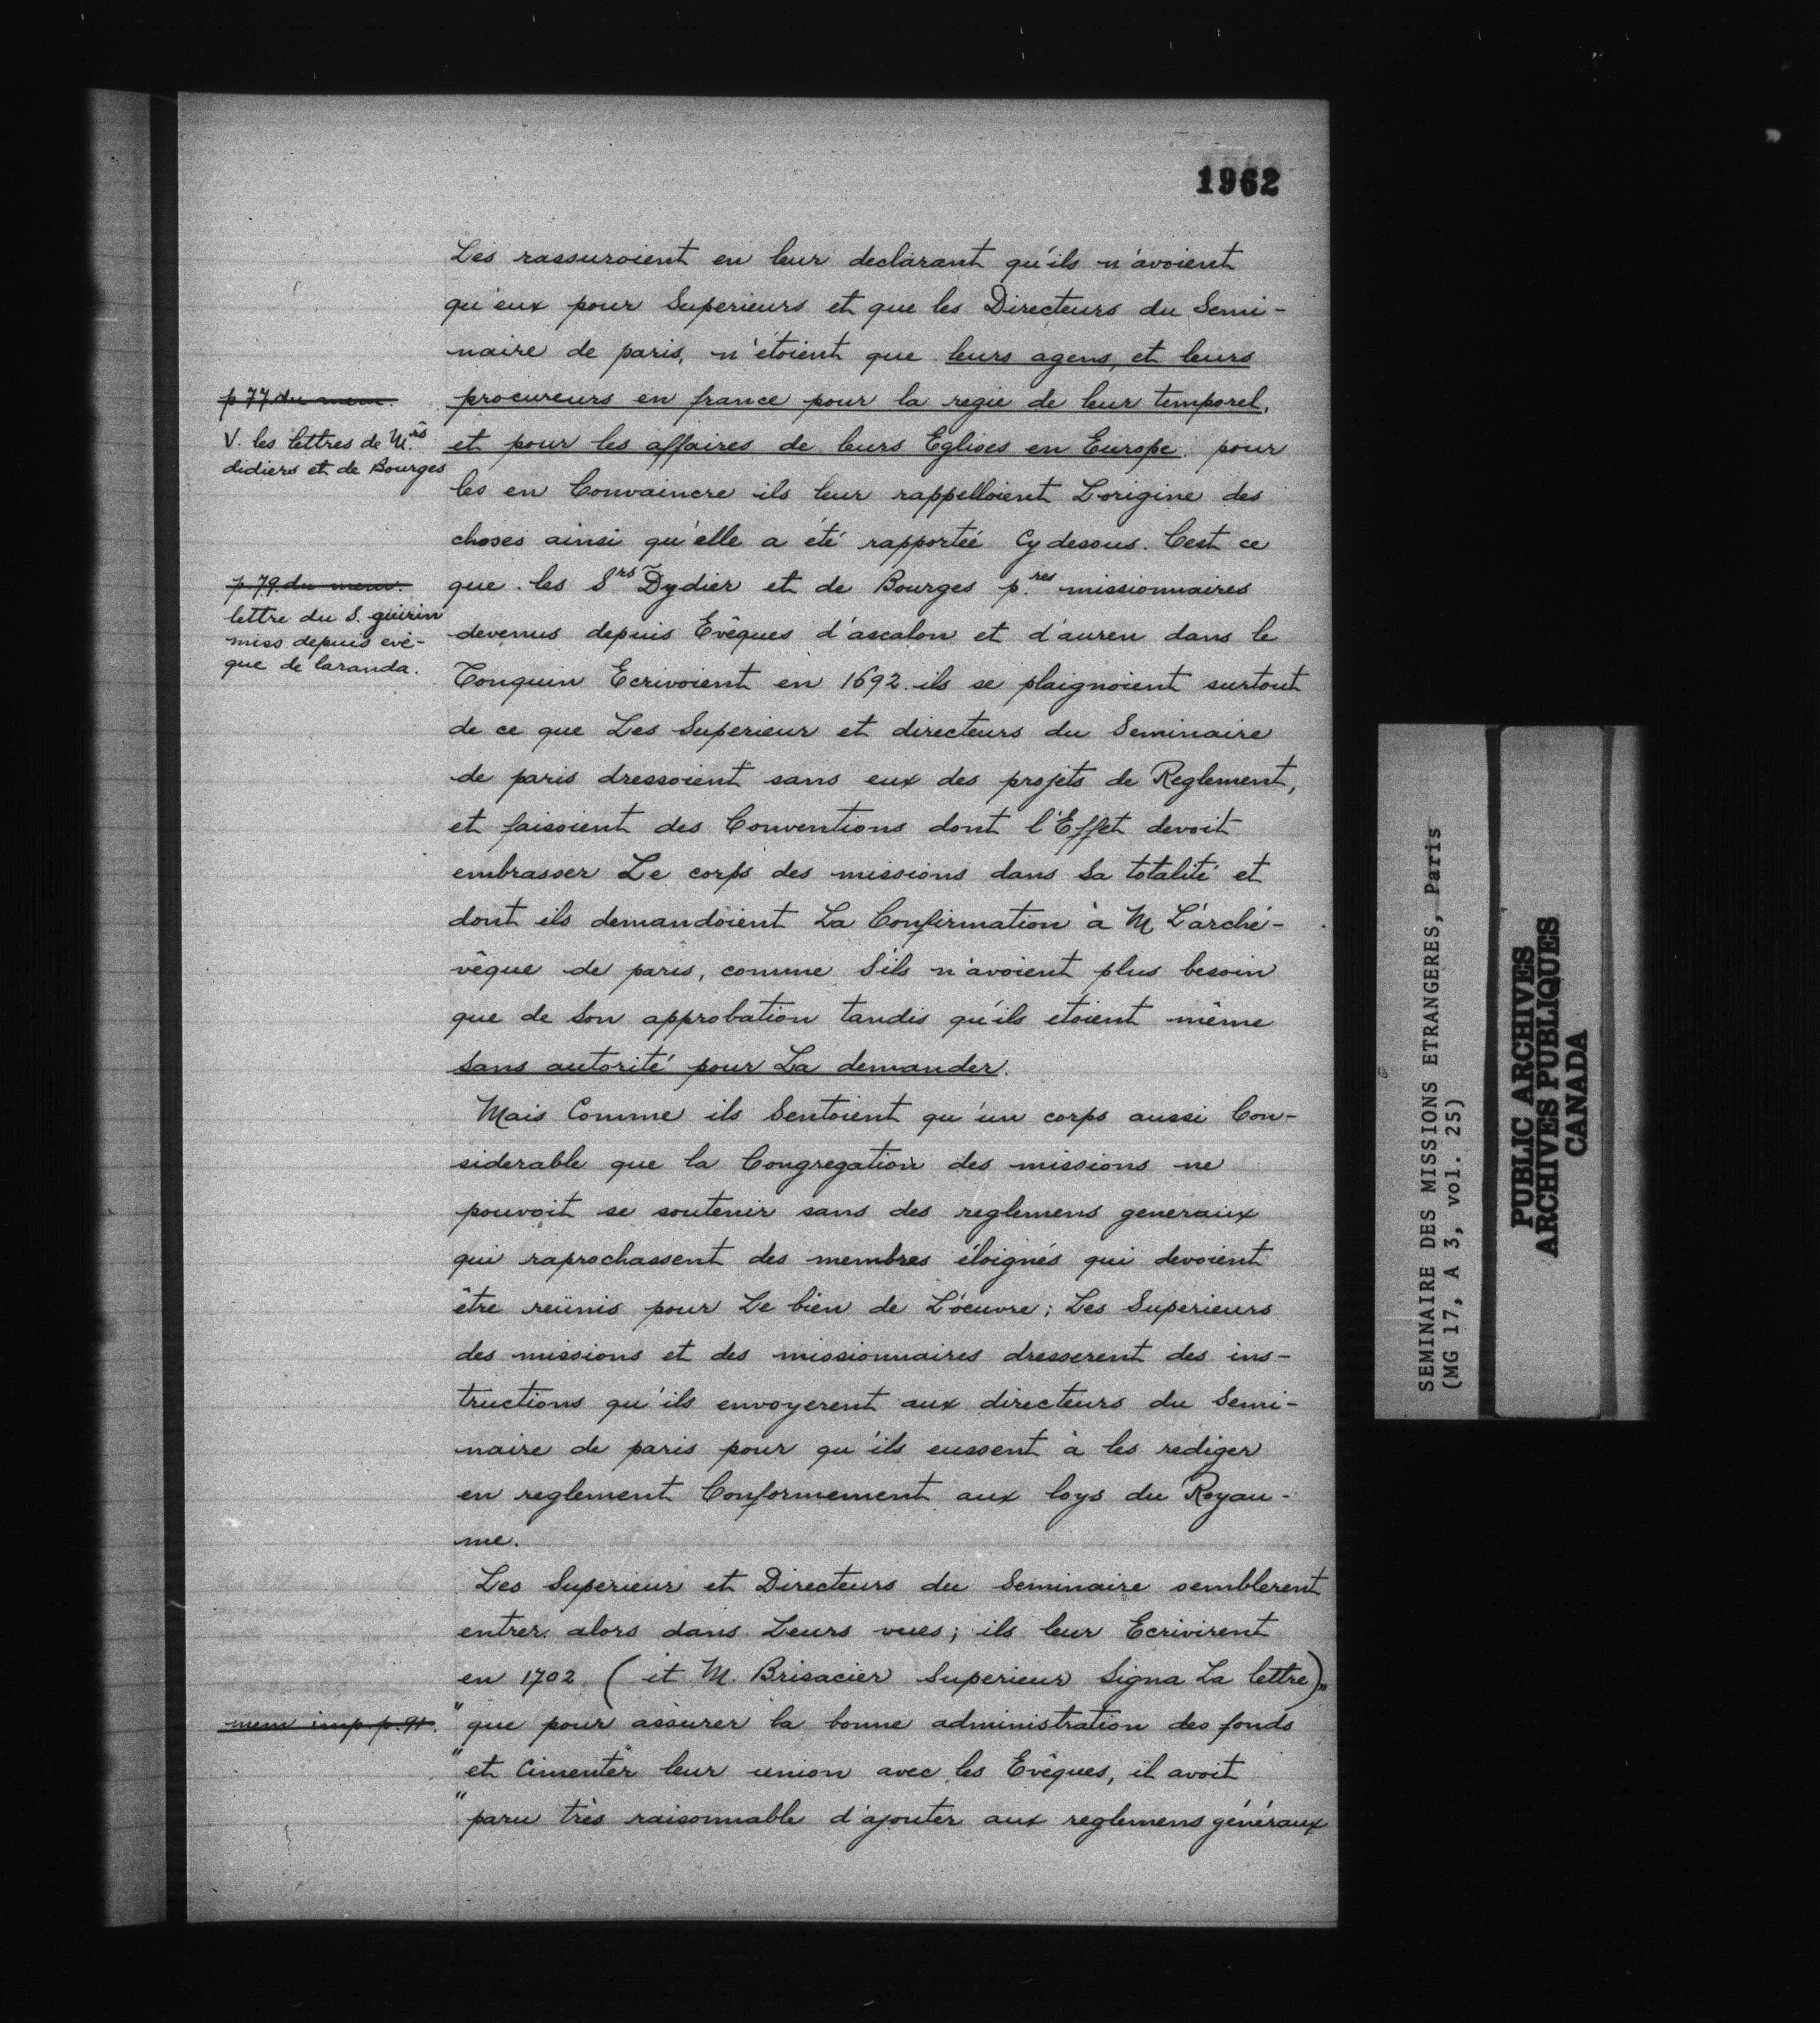 1962
Les rassuroient en leur declarant qu'ils n'avoient
qu'eux pour Superieurs et que les Directeurs du Semi-
naire de paris, n'étoient que leurs agens, et leurs
p 77 du mem.
procureurs en france pour la regie de leur temporel,
V. les lettres de M.rs
didiers et de Bourges
et pour les affaires de leurs Eglises en Europe. pour
les en Convaincre ils leur rappelloient L'origine des
choses ainsi qu'elle a été rapportée Cy desous. C'est ce
p 79 du mem.
lettre du S. guirin
miss depuis evê-
que de laranda.
que les Srs Dydier et de Bourges p.res missionnaires
devenus depuis Evêques d'ascalon et d'auren dans le
Tonquin Ecrivoient en 1692. ils se plaignoient surtout
de ce que Les Superieur et directeurs du Seminaire
de paris dressoient sans eux des projets de Reglement,
et faisoient des Conventions dont l'Effet devoit
embrasser Le corps des missions dans Sa totalité et
dont ils demandoient La Confirmation à M L'arché-
vêque de paris, comme S'ils n'avoient plus besoin
que de Son approbation tandis qu'ils etoient même
Sans autorité pour La demander.
Mais Comme ils Sentoient qu'un corps aussi Con-
siderable que la Congregation des missions ne
pouvoit se soutenir sans des reglemens generaux
qui raprochassent des membres éloignés qui devoient
être reünis pour Le bien de L'oeuvre; Les Superieurs
des missions et des missionnaires dresserent des ins-
tructions qu'ils envoyerent aux directeurs du Semi-
naire de paris pour qu'ils eussent à les rediger
en reglement Conformement aux loys du Royau-
me.
Les Superieur et Directeurs du Seminaire semblerent
entrer alors dans Leurs vues; ils leur Ecrivirent
en 1702. (et M. Brisacier Superieur Signa La lettre)"
mem imp p. 91.
"que pour assurer la bonne administration des fonds
"et Cimenter leur union avec les Evêques, il avoit
"paru très raisonnable d'ajouter aux reglemens généraux
SEMINAIRE DES MISSIONS ETRANGERES, Paris
(MG 17, A 3, vol. 25)
PUBLIC ARCHIVES
ARCHIVES PUBLIQUES
CANADA